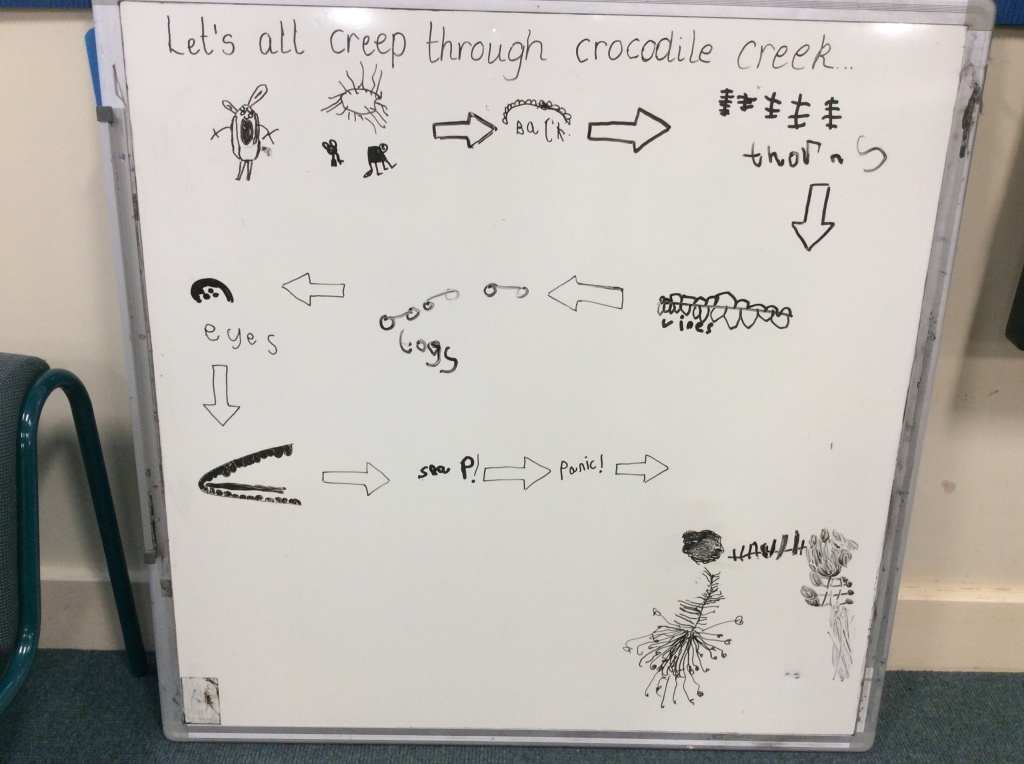 Let's all creep through crocodile creek...
Back
thorns
vines
logs
eyes
snap!
panic!